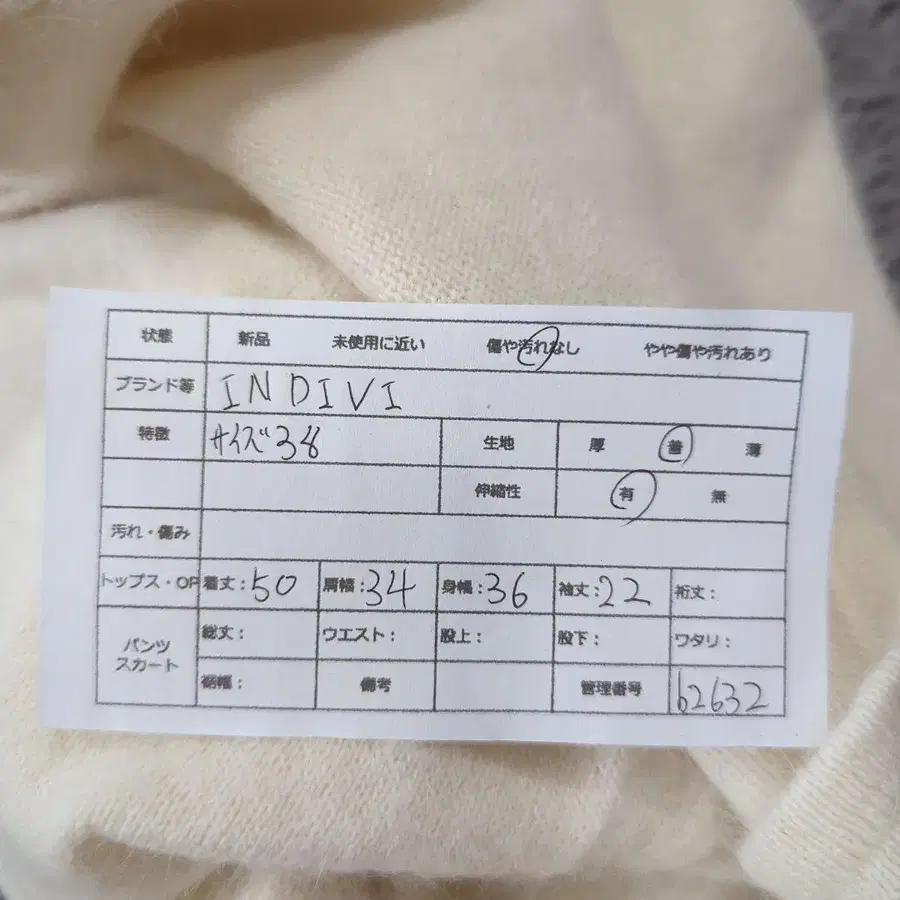 状態 新品 未使用に近い 傷や汚れなし やや傷や汚れあり
ブランド等 INDIVI
特徴 サイズ38 生地 厚 普 薄
伸縮性 有 無
汚れ・傷み
トップス・OP 着丈:50 肩幅:34 身幅:36 袖丈:22 裄丈:
パンツ スカート 総丈: ウエスト: 股上: 股下: ワタリ:
裾幅: 備考 管理番号 62632